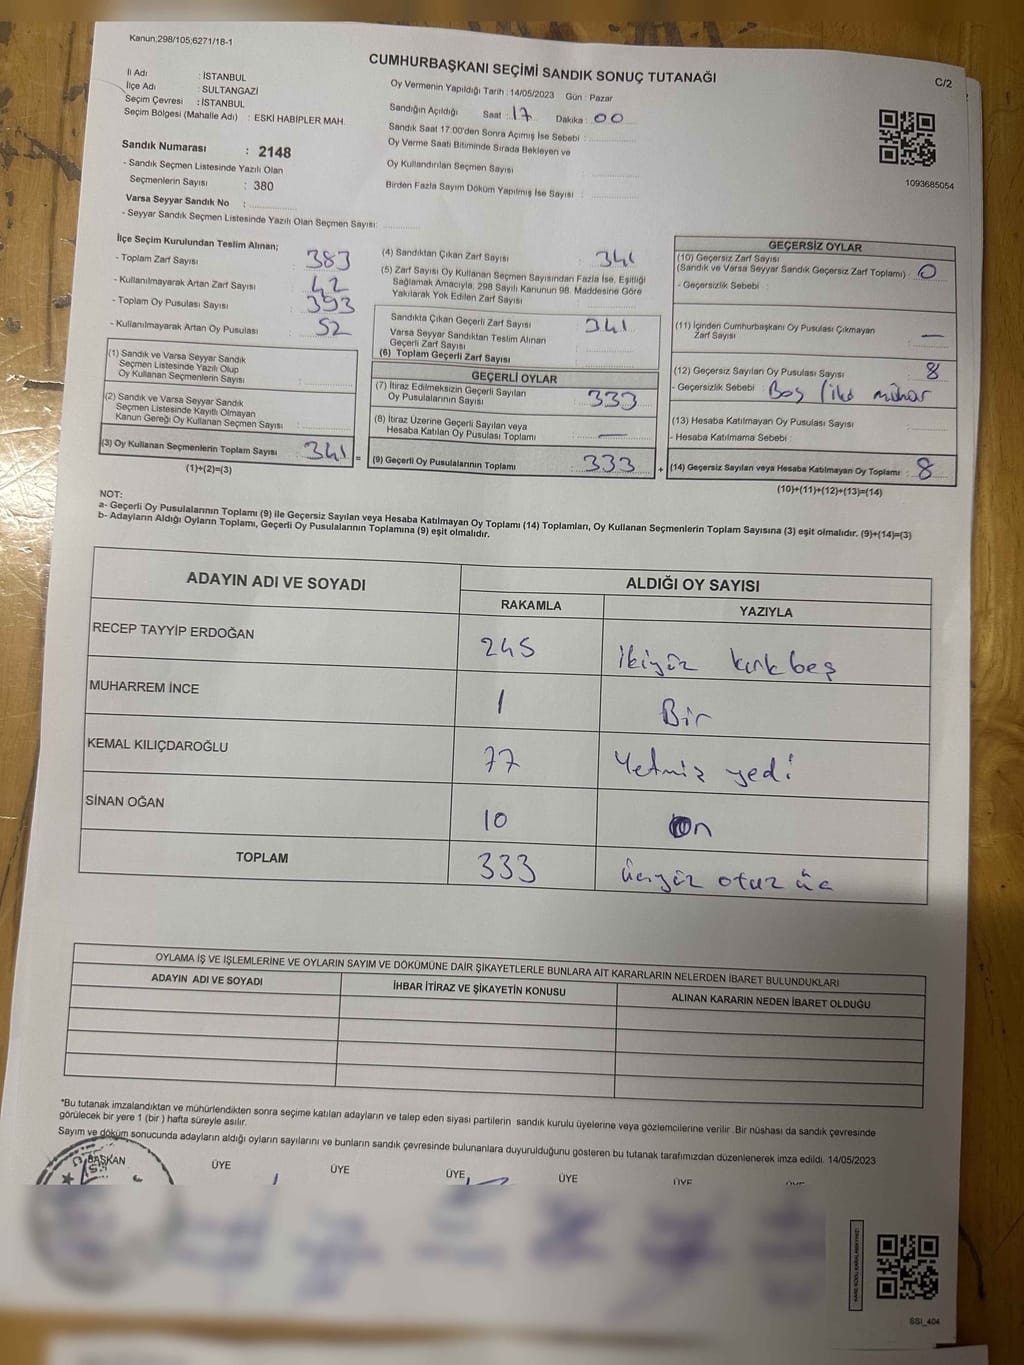 Kanun,298/105,6271/18-1
CUMHURBAŞKANI SEÇİMİ SANDIK SONUÇ TUTANAĞI
C/2
İl Adı : İSTANBUL
İlçe Adı : SULTANGAZİ
Seçim Çevresi : İSTANBUL
Seçim Bölgesi (Mahalle Adı) : ESKİ HABİPLER MAH.
Oy Vermenin Yapıldığı Tarih : 14/05/2023 Gün : Pazar
Sandığın Açıldığı Saat : 17 Dakika : 00
Sandık Saat 17:00'den Sonra Açımış İse Sebebi :
Oy Verme Saati Bitiminde Sırada Bekleyen ve
Oy Kullandırılan Seçmen Sayısı :
Birden Fazla Sayım Döküm Yapılmış İse Sayısı :
1093685054
Sandık Numarası : 2148
- Sandık Seçmen Listesinde Yazılı Olan
Seçmenlerin Sayısı : 380
Varsa Seyyar Sandık No :
- Seyyar Sandık Seçmen Listesinde Yazılı Olan Seçmen Sayısı:
İlçe Seçim Kurulundan Teslim Alınan;
- Toplam Zarf Sayısı : 383
- Kullanılmayarak Artan Zarf Sayısı : 42
- Toplam Oy Pusulası Sayısı : 393
- Kullanılmayarak Artan Oy Pusulası : 52
(1) Sandık ve Varsa Seyyar Sandık
Seçmen Listesinde Yazılı Olup
Oy Kullanan Seçmenlerin Sayısı :
(2) Sandık ve Varsa Seyyar Sandık
Seçmen Listesinde Kayıtlı Olmayan
Kanun Gereği Oy Kullanan Seçmen Sayısı :
(3) Oy Kullanan Seçmenlerin Toplam Sayısı : 341 =
(1)+(2)=(3)
(4) Sandıktan Çıkan Zarf Sayısı : 341
(5) Zarf Sayısı Oy Kullanan Seçmen Sayısından Fazla İse, Eşitliği
Sağlamak Amacıyla, 298 Sayılı Kanunun 98. Maddesine Göre
Yakılarak Yok Edilen Zarf Sayısı :
Sandıkta Çıkan Geçerli Zarf Sayısı : 341
Varsa Seyyar Sandıktan Teslim Alınan
Geçerli Zarf Sayısı :
(6) Toplam Geçerli Zarf Sayısı
GEÇERLİ OYLAR
(7) İtiraz Edilmeksizin Geçerli Sayılan
Oy Pusulalarının Sayısı : 333
(8) İtiraz Üzerine Geçerli Sayılan veya
Hesaba Katılan Oy Pusulası Toplamı : —
(9) Geçerli Oy Pusulalarının Toplamı : 333 +
GEÇERSİZ OYLAR
(10) Geçersiz Zarf Sayısı
(Sandık ve Varsa Seyyar Sandık Geçersiz Zarf Toplamı) : 0
- Geçersizlik Sebebi :
(11) İçinden Cumhurbaşkanı Oy Pusulası Çıkmayan
Zarf Sayısı : —
(12) Geçersiz Sayılan Oy Pusulası Sayısı : 8
- Geçersizlik Sebebi : Boş / iki mühür
(13) Hesaba Katılmayan Oy Pusulası Sayısı :
- Hesaba Katılmama Sebebi :
(14) Geçersiz Sayılan veya Hesaba Katılmayan Oy Toplamı : 8
(10)+(11)+(12)+(13)=(14)
NOT:
a- Geçerli Oy Pusulalarının Toplamı (9) ile Geçersiz Sayılan veya Hesaba Katılmayan Oy Toplamı (14) Toplamları, Oy Kullanan Seçmenlerin Toplam Sayısına (3) eşit olmalıdır. (9)+(14)=(3)
b- Adayların Aldığı Oyların Toplamı, Geçerli Oy Pusulalarının Toplamına (9) eşit olmalıdır.
ADAYIN ADI VE SOYADI ALDIĞI OY SAYISI
RAKAMLA YAZIYLA
RECEP TAYYİP ERDOĞAN 245 ikiyüz kırk beş
MUHARREM İNCE 1 Bir
KEMAL KILIÇDAROĞLU 77 Yetmiş yedi
SİNAN OĞAN 10 On
TOPLAM 333 üçyüz otuz üç
OYLAMA İŞ VE İŞLEMLERİNE VE OYLARIN SAYIM VE DÖKÜMÜNE DAİR ŞİKAYETLERLE BUNLARA AİT KARARLARIN NELERDEN İBARET BULUNDUKLARI
ADAYIN ADI VE SOYADI İHBAR İTİRAZ VE ŞİKAYETİN KONUSU ALINAN KARARIN NEDEN İBARET OLDUĞU
*Bu tutanak imzalandıktan ve mühürlendikten sonra seçime katılan adayların ve talep eden siyasi partilerin sandık kurulu üyelerine veya gözlemcilerine verilir .Bir nüshası da sandık çevresinde
görülecek bir yere 1 (bir ) hafta süreyle asılır.
Sayım ve döküm sonucunda adayların aldığı oyların sayılarını ve bunların sandık çevresinde bulunanlara duyurulduğunu gösteren bu tutanak tarafımızdan düzenlenerek imza edildi. 14/05/2023
BAŞKAN ÜYE ÜYE ÜYE ÜYE ÜYE ÜYE
SSI_404